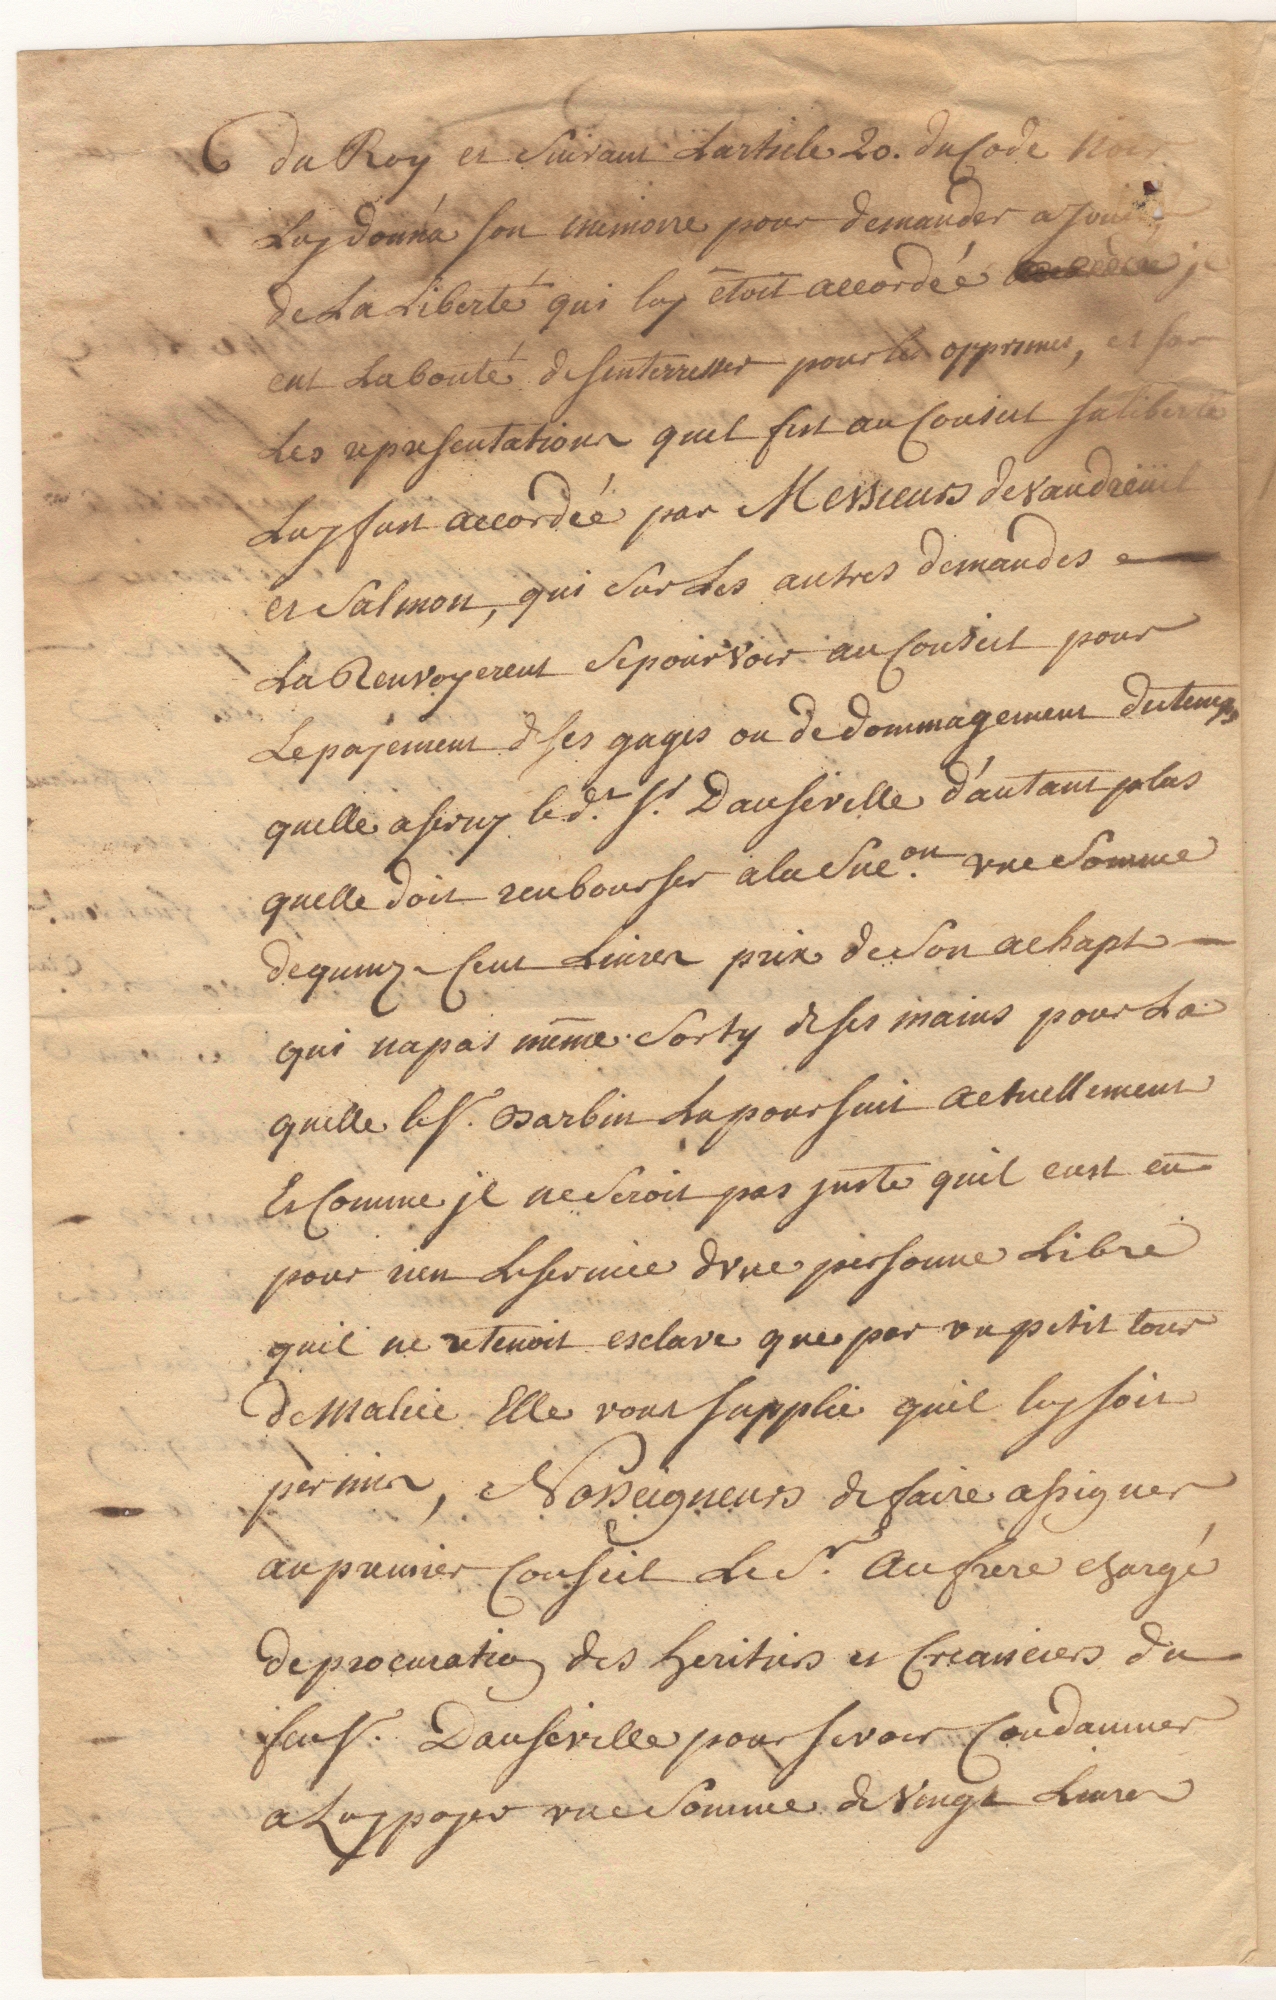 du Roy et Suivant Larticle 20. du Code Noir
Luy donna son memoire pour demander a Jouir
de La Liberté qui luy étoit accordée jl
eut La bonté de sinterresser pour les opprimes, et sur
Les representations quil fist au Conseil sa liberté
Luy fust accordée par Messieurs de Vaudreüil
et Salmon, qui sur Les autres demandes
La Renvoyerent se pourvoir au Conseil pour
Le payement de ses gages ou dedommagement du temps
quelle a servy le d.t S.r Dauseville d'autant plus
quelle doit renbourser a la Suc.on vne Somme
de quinz Cent Livres prix de Son achapt
qui na pas même Sorty de ses mains pour La
quelle le S.r Barbin La poursuit actuellement
Et Comme jl ne Seroit pas juste quil eust eû
pour rien Le service dvne personne Libre
quil ne retenoit esclave que par vn petit tour
de Malice Elle vous supplie quil luy soit
permis, Nosseigneurs de faire assigner
au premier Conseil Le S.r Aufrere chargé
de procuration des heritiers et Creanciers du
feu S.r Dauseville pour se voir Condamner
a Luy payer vne Somme de Vingt Livres